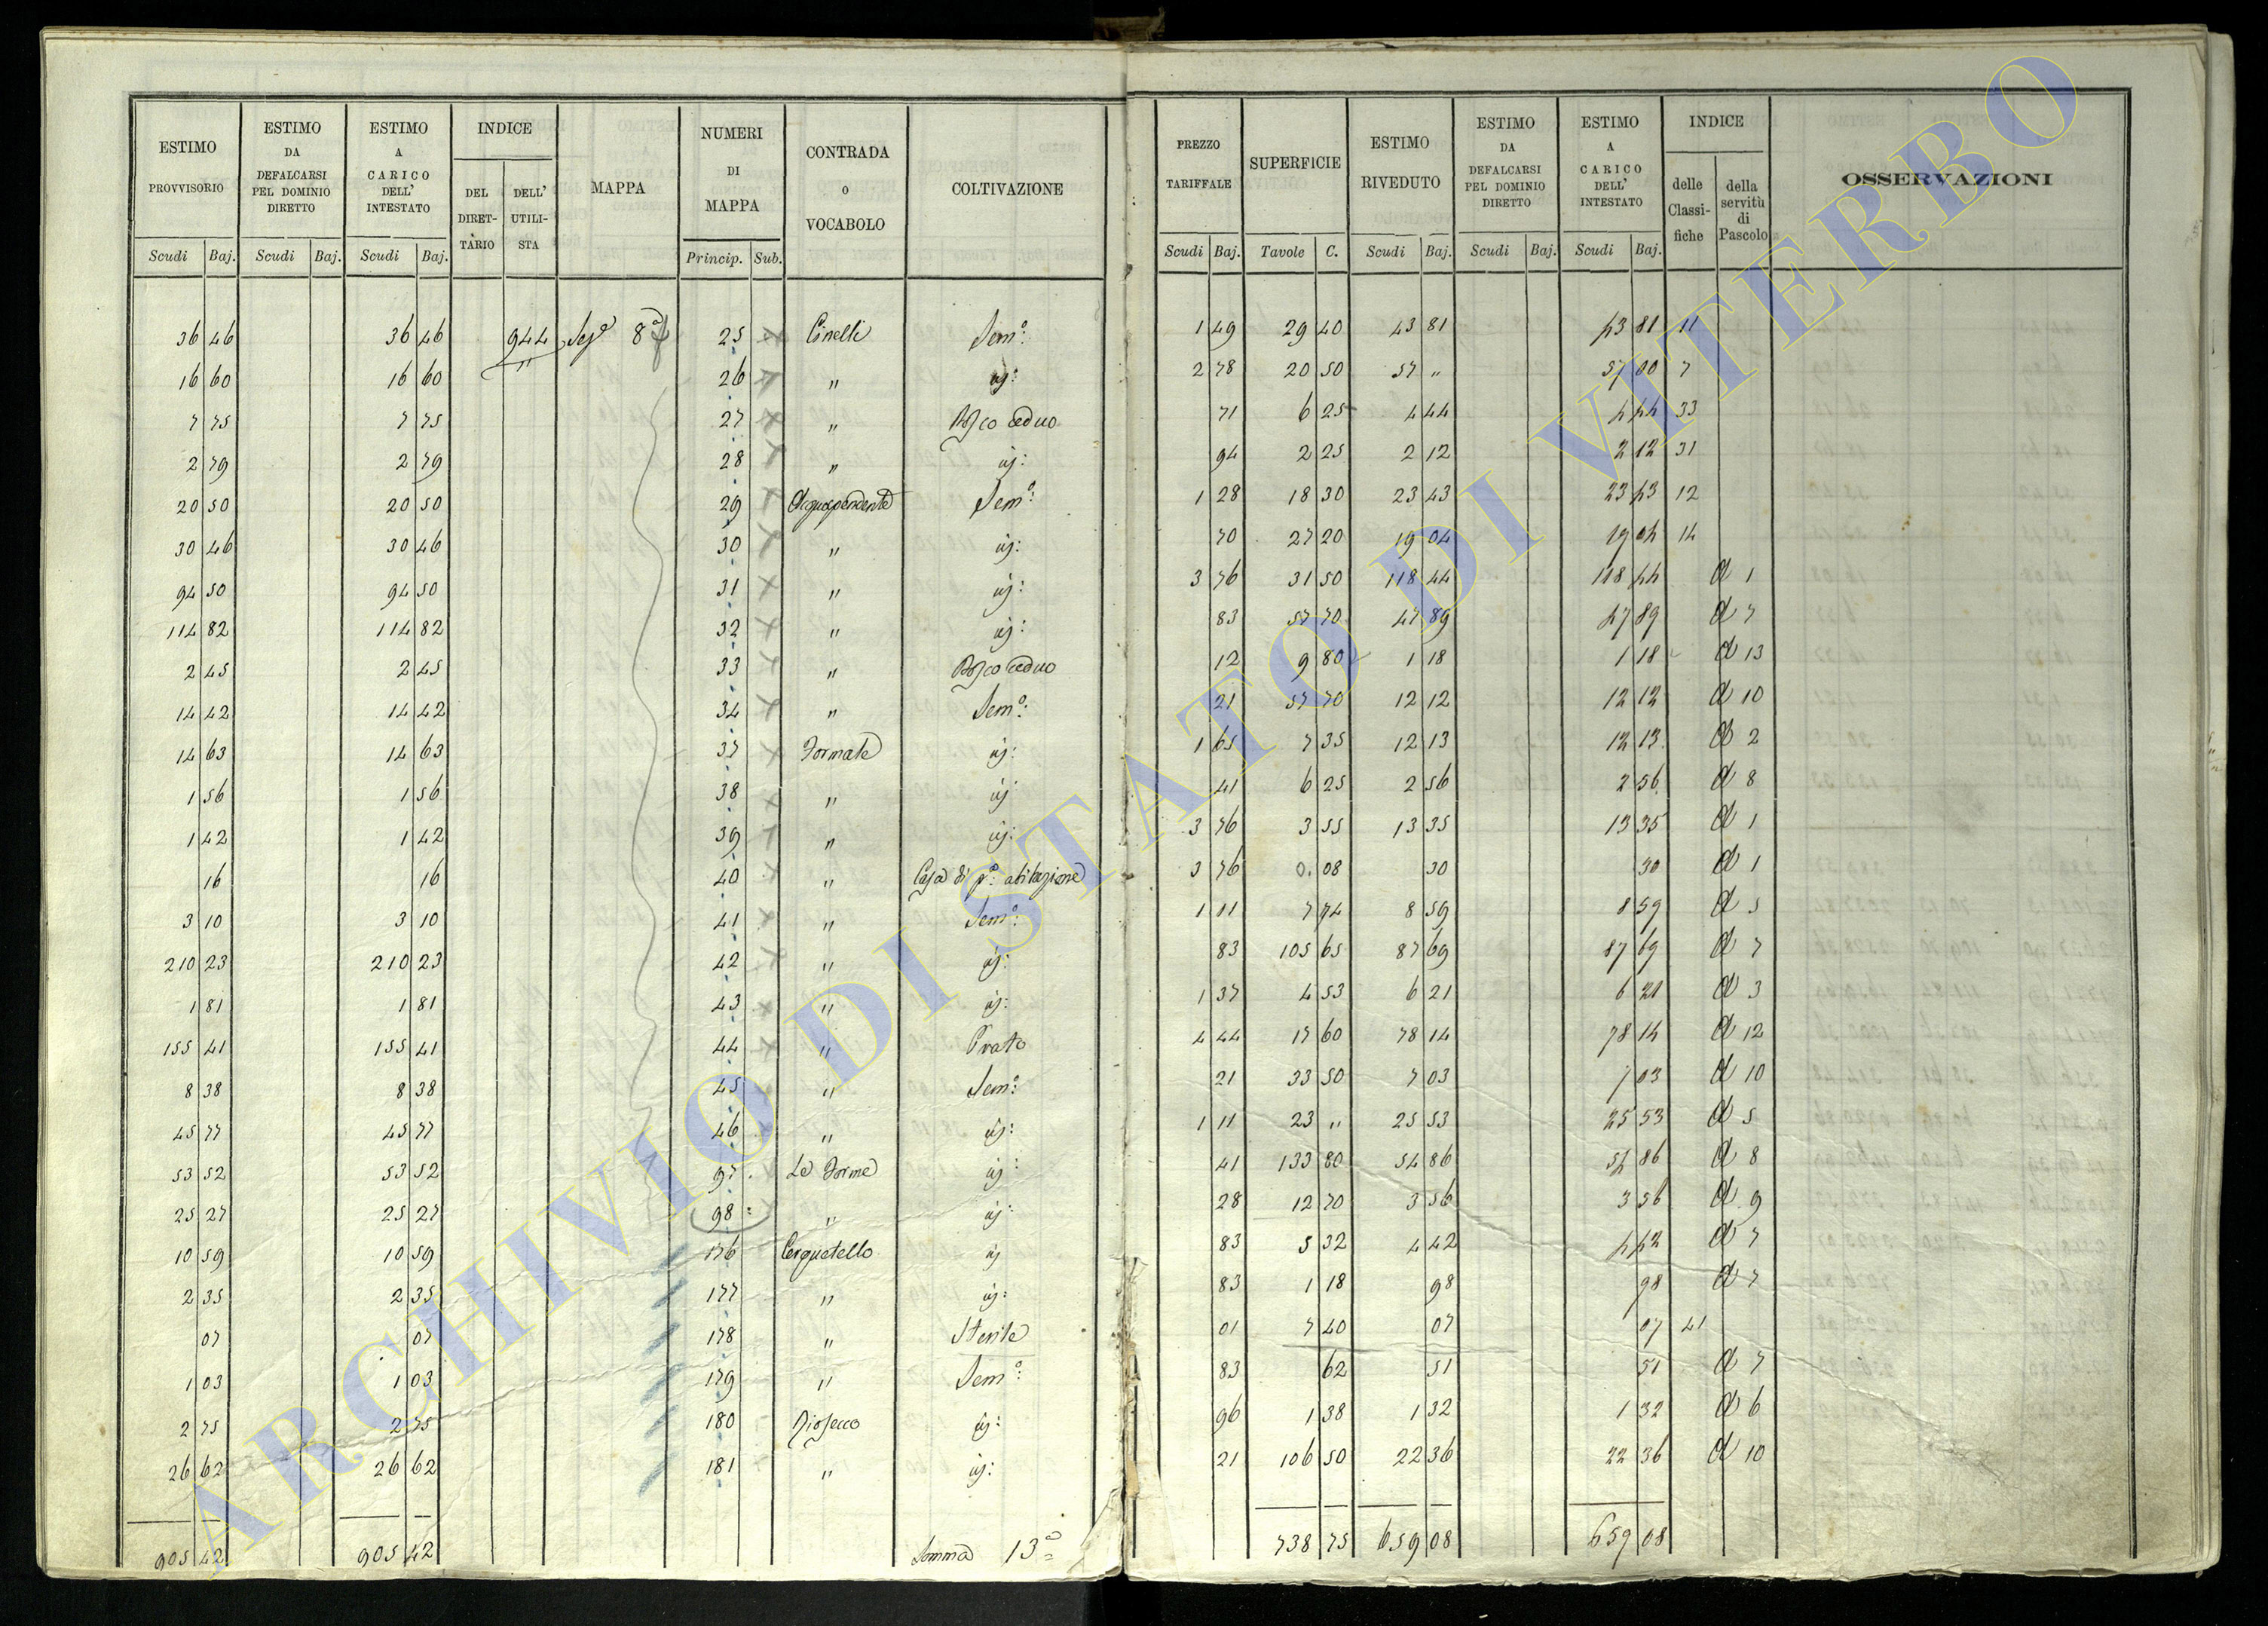 ESTIMO PROVVISORIO | ESTIMO DA DEFALCARSI PEL DOMINIO DIRETTO | ESTIMO A CARICO DELL' INTESTATO | INDICE | MAPPA | NUMERI DI MAPPA | CONTRADA o VOCABOLO | COLTIVAZIONE | PREZZO TARIFFALE | SUPERFICIE | ESTIMO RIVEDUTO | ESTIMO DA DEFALCARSI PEL DOMINIO DIRETTO | ESTIMO A CARICO DELL' INTESTATO | INDICE | OSSERVAZIONI
DEL DIRETTARIO | DELL' UTILISTA | delle Classifiche | della servitù di Pascolo
Scudi | Baj. | Scudi | Baj. | Scudi | Baj. | Princip. | Sub. | Scudi | Baj. | Tavole | C. | Scudi | Baj. | Scudi | Baj. | Scudi | Baj.
36 46 | 36 46 | 944 | Sezᵉ 8ª | 25 | Cinelli | Semº: | 1 49 | 29 40 | 43 81 | 43 81 | 11
16 60 | 16 60 | 26 | " | ıj: | 2 78 | 20 50 | 57 " | 57 00 | 7
7 75 | 7 75 | 27 | " | Bosco ceduo | 71 | 6 25 | 4 44 | 4 44 | 33
2 79 | 2 79 | 28 | " | ıj: | 94 | 2 25 | 2 12 | 2 12 | 31
20 50 | 20 50 | 29 | Acquapendente | Semº: | 1 28 | 18 30 | 23 43 | 23 43 | 12
30 46 | 30 46 | 30 | " | ıj: | 70 | 27 20 | 19 04 | 19 04 | 14
94 50 | 94 50 | 31 | " | ıj: | 3 76 | 31 50 | 118 44 | 118 44 | A 1
114 82 | 114 82 | 32 | " | ıj: | 83 | 57 70 | 47 89 | 47 89 | A 7
2 45 | 2 45 | 33 | " | Bosco ceduo | 12 | 9 80 | 1 18 | 1 18 | A 13
14 42 | 14 42 | 34 | " | Semº: | 21 | 57 70 | 12 12 | 12 12 | A 10
14 63 | 14 63 | 37 | Formale | ıj: | 1 65 | 7 35 | 12 13 | 12 13 | A 2
1 56 | 1 56 | 38 | " | ıj | 41 | 6 25 | 2 56 | 2 56 | A 8
1 42 | 1 42 | 39 | " | ıj: | 3 76 | 3 55 | 13 35 | 13 35 | A 1
16 | 16 | 40 | " | Casa di pª: abitazione | 3 76 | 0. 08 | 30 | 30 | A 1
3 10 | 3 10 | 41 | " | Semº: | 1 11 | 7 74 | 8 59 | 8 59 | A 5
210 23 | 210 23 | 42 | " | ıj: | 83 | 105 65 | 87 69 | 87 69 | A 7
1 81 | 1 81 | 43 | " | ıj: | 1 37 | 4 53 | 6 21 | 6 21 | A 3
155 41 | 155 41 | 44 | " | Prato | 4 44 | 17 60 | 78 14 | 78 14 | A 12
8 38 | 8 38 | 45 | " | Semº: | 21 | 33 50 | 7 03 | 7 03 | A 10
45 77 | 45 77 | 46 | " | ıj: | 1 11 | 23 " | 25 53 | 25 53 | A 5
53 52 | 53 52 | 97 | Le Forme | ıj: | 41 | 133 80 | 54 86 | 54 86 | A 8
25 27 | 25 27 | 98 | " | ıj: | 28 | 12 70 | 3 56 | 3 56 | A 9
10 59 | 10 59 | 176 | Cerquetello | ıj | 83 | 5 32 | 4 42 | 4 42 | A 7
2 35 | 2 35 | 177 | " | ıj: | 83 | 1 18 | 98 | 98 | A 7
07 | 07 | 178 | " | Sterile | 01 | 7 40 | 07 | 07 | 41
1 03 | 1 03 | 179 | " | Semº: | 83 | 62 | 51 | 51 | A 7
2 75 | 2 75 | 180 | Riosecco | ıj: | 96 | 1 38 | 1 32 | 1 32 | A 6
26 62 | 26 62 | 181 | " | ıj: | 21 | 106 50 | 22 36 | 22 36 | A 10
905 42 | 905 42 | Somma 13ª | 738 75 | 659 08 | 659 08
ARCHIVIO DI STATO DI VITERBO